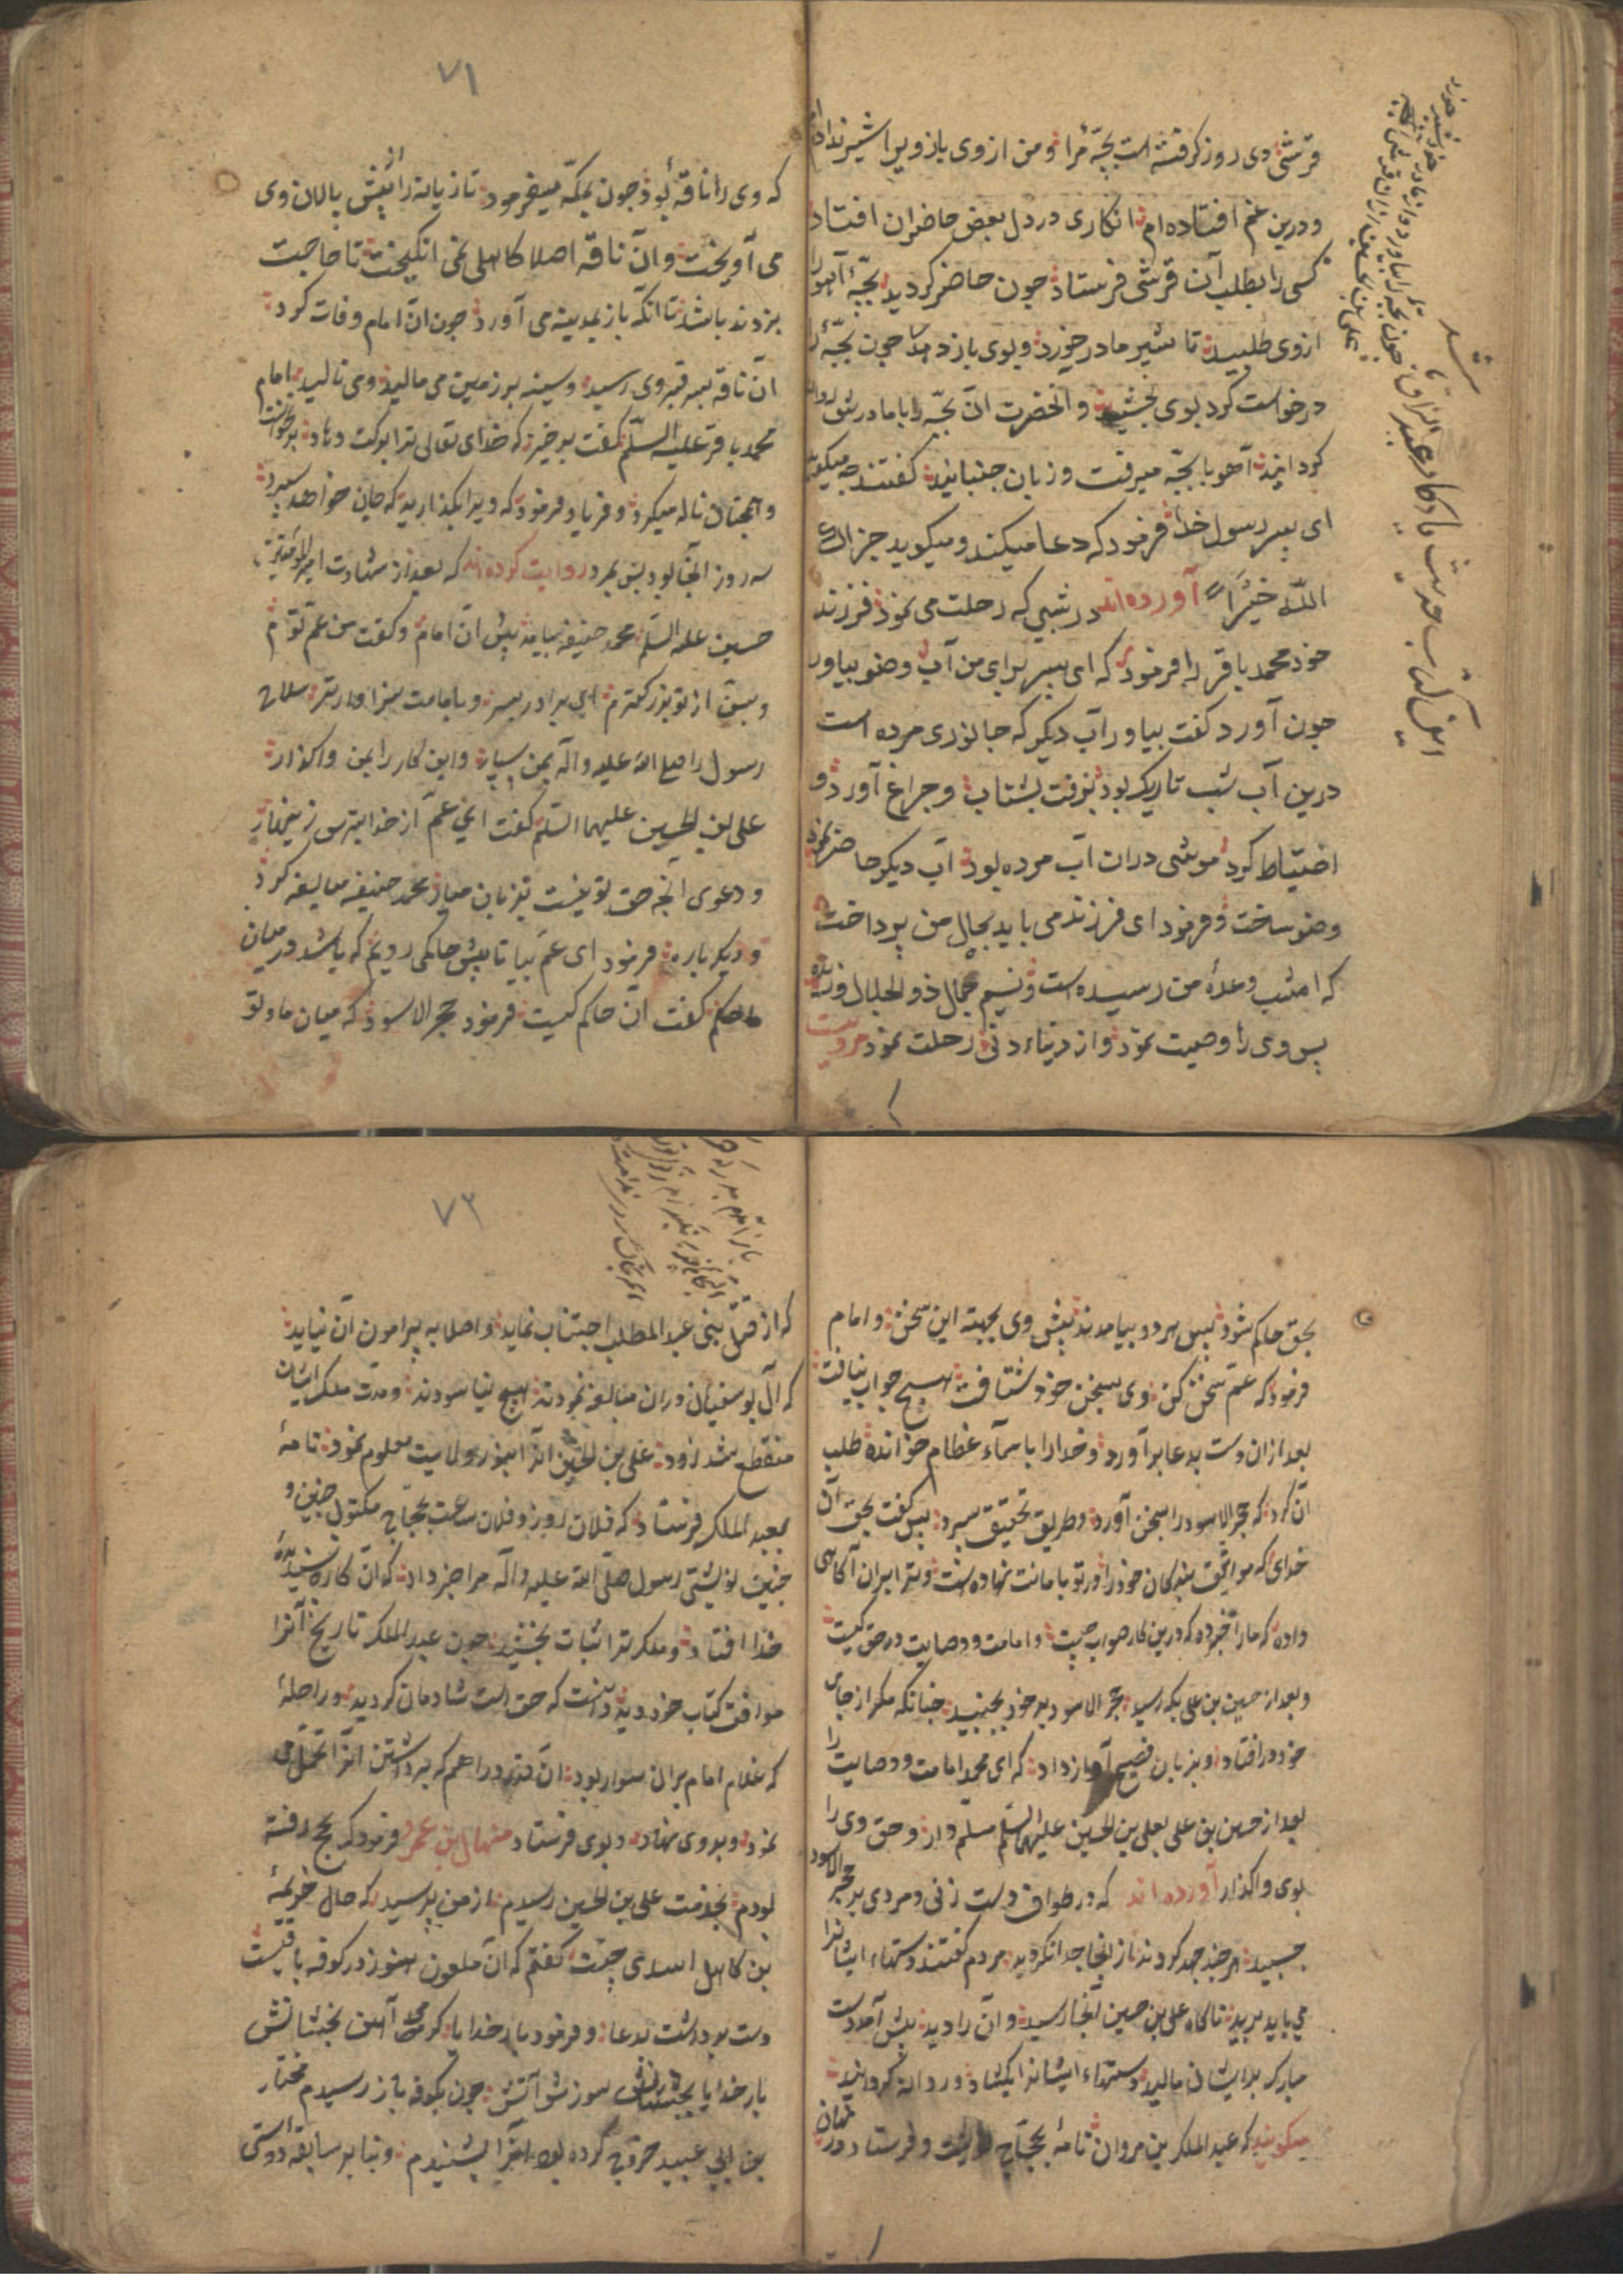 قرشئ دی روز کرفتنه است بچّهٔ مرا و من از وی باز ویرا شیر نداده ام
و درین غم افتاده‌ام انکاری در دل بعض حاضران افتاد
کسی را بطلب آن قرشی فرستاد جون حاضر کردید بچّهٔ آهو را
از وی طلبید تا شیر مادر خورد و بوی باز دهد جون بچّه را
درخواست کرد بوی بخشید و آنحضرت آن بچّه را با مادرش روانه
کردانید آهو با بچّه میرفت و زبان جنبانید کفتند جه میکوید
ای پسر رسول خدا فرمود که دعا میکند و میکوید جزاک
اللّه خیراً آورده‌اند در شبی که رحلت می نمود فرزند
خود محمد باقر را فرمود که ای پسر برای من آب وضو بیاور
جون آورد کفت بیاور آب دیکر که جانوری مرده است
درین آب شب تاریک بود برفت بشتاب و جراغ آورد و
احتیاط کرد موشی در ان آب مرده بود آب دیکر حاضر نمود
وضو ساخت و فرمود ای فرزند می باید بحال من پرداخت
که امشب وعدهٔ من رسیده است و نسیم جمال ذو الجلال وزیده
پس وی را وصیت نمود و از دنیاء دنی رحلت نمود مرویست
این کتاب حدیث یادکار عبد الرزاق
۷۱
که وی را ناقهٔ بود جون بمکّه میفرمود تازیانه را از پیش پالان وی
می آویخت و آن ناقه اصلا کاهلی نمی انکیخت تا حاجت
بزدن باشد تا انکه باز بمدینه می آورد جون آن امام وفات کرد
آن ناقه بسر قبر وی رسید و سینه بر زمین می مالید و می نالید امام
محمد باقر علیه السلّم کفت برخیز که خدای تعالی ترا برکت دهاد برنخواست
و همجنان ناله میکرد و فریاد فرمود که ویرا بکذارید که جان خواهد سپرد
سه روز آنجا بود پس بمرد روایت کرده‌اند که بعد از شهادت امیر المؤمنین
حسین علیه السلّم محمد حنیفه بیامد پیش آن امام و کفت من عمّ توام
و بسن از تو بزرکترم ای برادر پسر و بامامت سزاوارتر سلاح
رسول را صلی الله علیه واله بمن سپار و این کار را بمن واکذار
علی بن الحسین علیهما السلّم کفت ای عمّ از خدا بترس
و دعوی آنجه حق تو نیست بر زبان میار محمد حنیفه مبالغه کرد
و دیکر باره فرمود ای عمّ بیا تا پیش حاکمی رویم که باشد در میان
ما حکم کفت آن حاکم کیست فرمود حجر الاسود که میان ما و تو
بحق حاکم شود پس هر دو بیامدند پیش وی بجهته این سخن و امام
فرمود که عمّ سخن کن وی بسخن خود شتافت هیچ جواب نیافت
بعد از ان دست بدعا برآورد و خدا را باسمآء عظام خوانده طلب
آن کرد که حجر الاسود را بسخن آورد و طریق تحقیق سپرد پس کفت بحق آن
خدای که مواثیق بندکان خود را در تو بامانت نهاده است و ترا بر ان آکاهی
داده که ما را خبر ده که درین کار صواب جیست و امامت و وصایت در حق کیست
و بعد از حسین بن علی بکه رسید حجر الاسود بر خود بجنبید جنانکه مکر از جای
خود در افتاد و بزبان فصیح آواز داد که ای محمد امامت و وصایت را
بعد از حسین بن علی بعلی بن الحسین علیهما السلّم مسلّم دار و حق وی را
بوی واکذار آورده اند که در طواف دست زنی و مردی بر حجر الاسود
جسبید هر جند جهد کردند از آنجا جدا نکردید مردم کفتند دستهاء ایشانرا
می باید برید ناکاه علی بن حسین آنجا رسید و آن را دید پیش آمد دست
مبارک بر ایشان مالید دستهاء ایشانرا بکشاد و روانه کردانید
میکویند که عبد الملک بن مروان نامهٔ بحجّاج نوشت و فرستاد در نهان
۷۲
که از قتل بنی عبد المطلب اجتناب نماید و اصلا به پیرامون آن نیاید
که آل بو سفیان در ان مبالغه نمودند هیچ نیاسودند و مدت ملک ایشان
منقطع شد زود علی بن الحسین آنرا بنور ولایت معلوم نمود نامهٔ
بعبد الملک فرستاد که فلان روز و فلان ساعت بحجّاج مکتوب جنین و
جنین نوشتی رسول صلّی الله علیه وآله مرا خبر داد که آن کار پسندیدهٔ
خدا افتاد و ملک ترا ثبات بخشید جون عبد الملک تاریخ آنرا
موافق کتاب خود دید دانست که حق است شادمان کردید و راحلهٔ
که غلام امام بر ان سوار بود آن قدر دراهم که برداشتن آنرا تحمّل می
نمود و بر وی نهاد و بوی فرستاد منهال ابن عمر فرمود که بحج رفته
بودم بخدمت علی بن الحسین رسیدم از من پرسید که حال خزیمهٔ
بن کاهل اسدی جیست کفتم که آن ملعون هنوز در کوفه باقیست
دست برداشت بدعا و فرمود بار خدایا
بار خدایا بجشانش سوزش آتش جون بکوفه باز رسیدم مختار
بن ابی عبید خروج کرده بود آنرا شنیدم و بنا بر سابقه دوستی